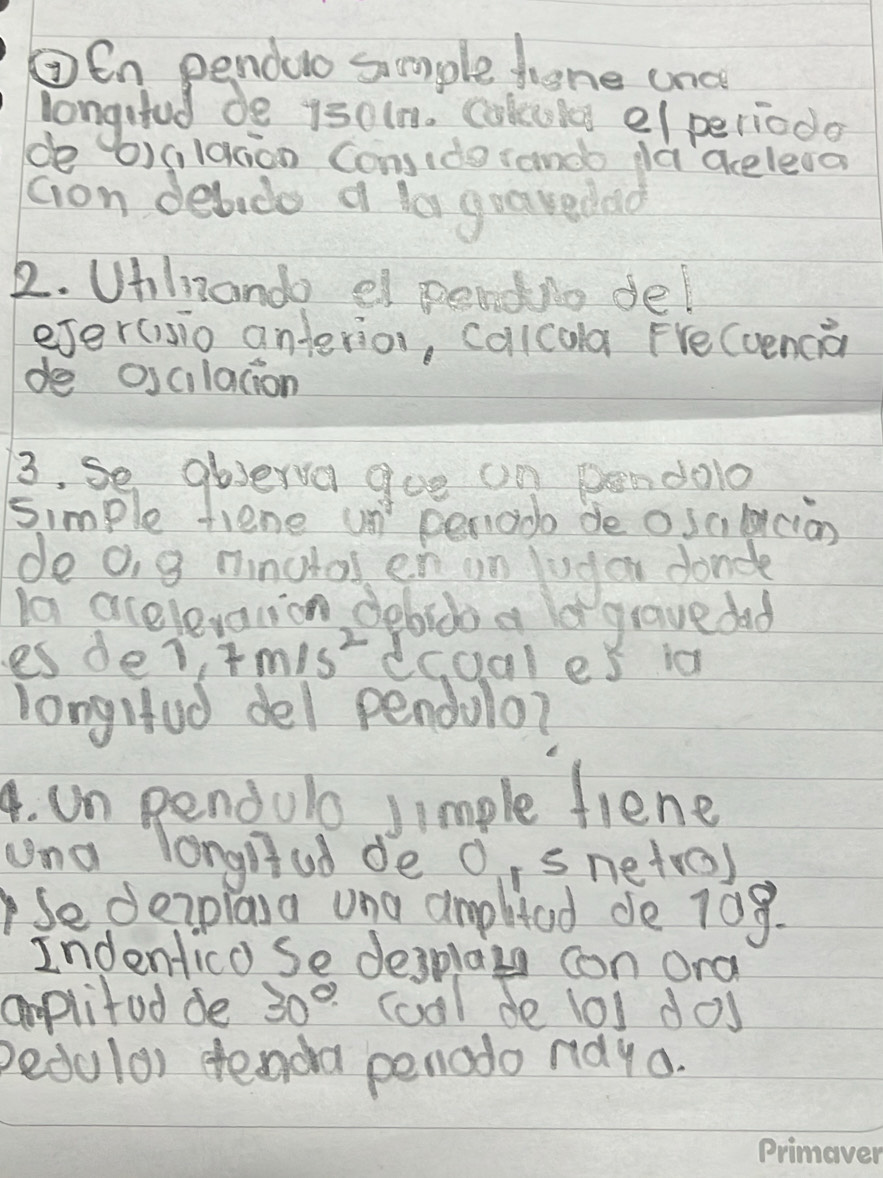 ① En pendulo simple tiene una
longitud de 150cm. Calcula el periodo
de oscilación considerando la acelera
cion debido a la gravedad
2. Utilizando el pendulo del
ejercisio anterior, calcula Frecuencia
de oscilación
3. Se observa que un pendolo
simple tiene un periodo de oscilación
de 0,9 minutos en un lugar donde
la aceleración debido a la gravedad
es de 1,7 m/s² ¿cual es la
longitud del pendulo?
4. Un pendulo simple tiene
una longitud de 0,5 metros
y se desplasa una amplitud de 10º.
Indentico se desplaza con
amplitud de 30º. Cual de los dos
pedulos tendra periodo maya.
Primaver